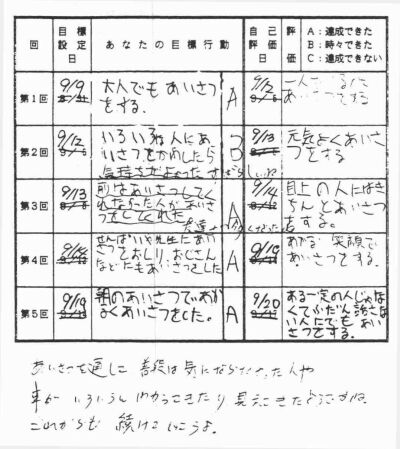 回 目標設定日 あなたの目標行動 自己評価日 評価 A：達成できた B：時々できた C：達成できない
第1回 9/9 大人でもあいさつをする。 A 9/12 あいさつをする
第2回 9/12 いろいろな人にあいさつをかわしたら気持ちがよかった B 9/13 元気よくあいさつをする
第3回 9/13 前はあいさつしてくれなかった人があいさつをしてくれた A 9/14 目上の人にはきちんとあいさつをする。
第4回 せんぱいや先生にあいさつをしたり、おじさんなどにもあいさつをした A 笑顔であいさつをする。
第5回 9/19 朝のあいさつで A 9/20 ある一定の人じゃなくてふだん話さない人にでもあいさつをする
あいさつを通して 普段は気にならなかった人や
事が いろいろ わかってきたり 見えてきたようですね。
これからも 続けていこうよ。